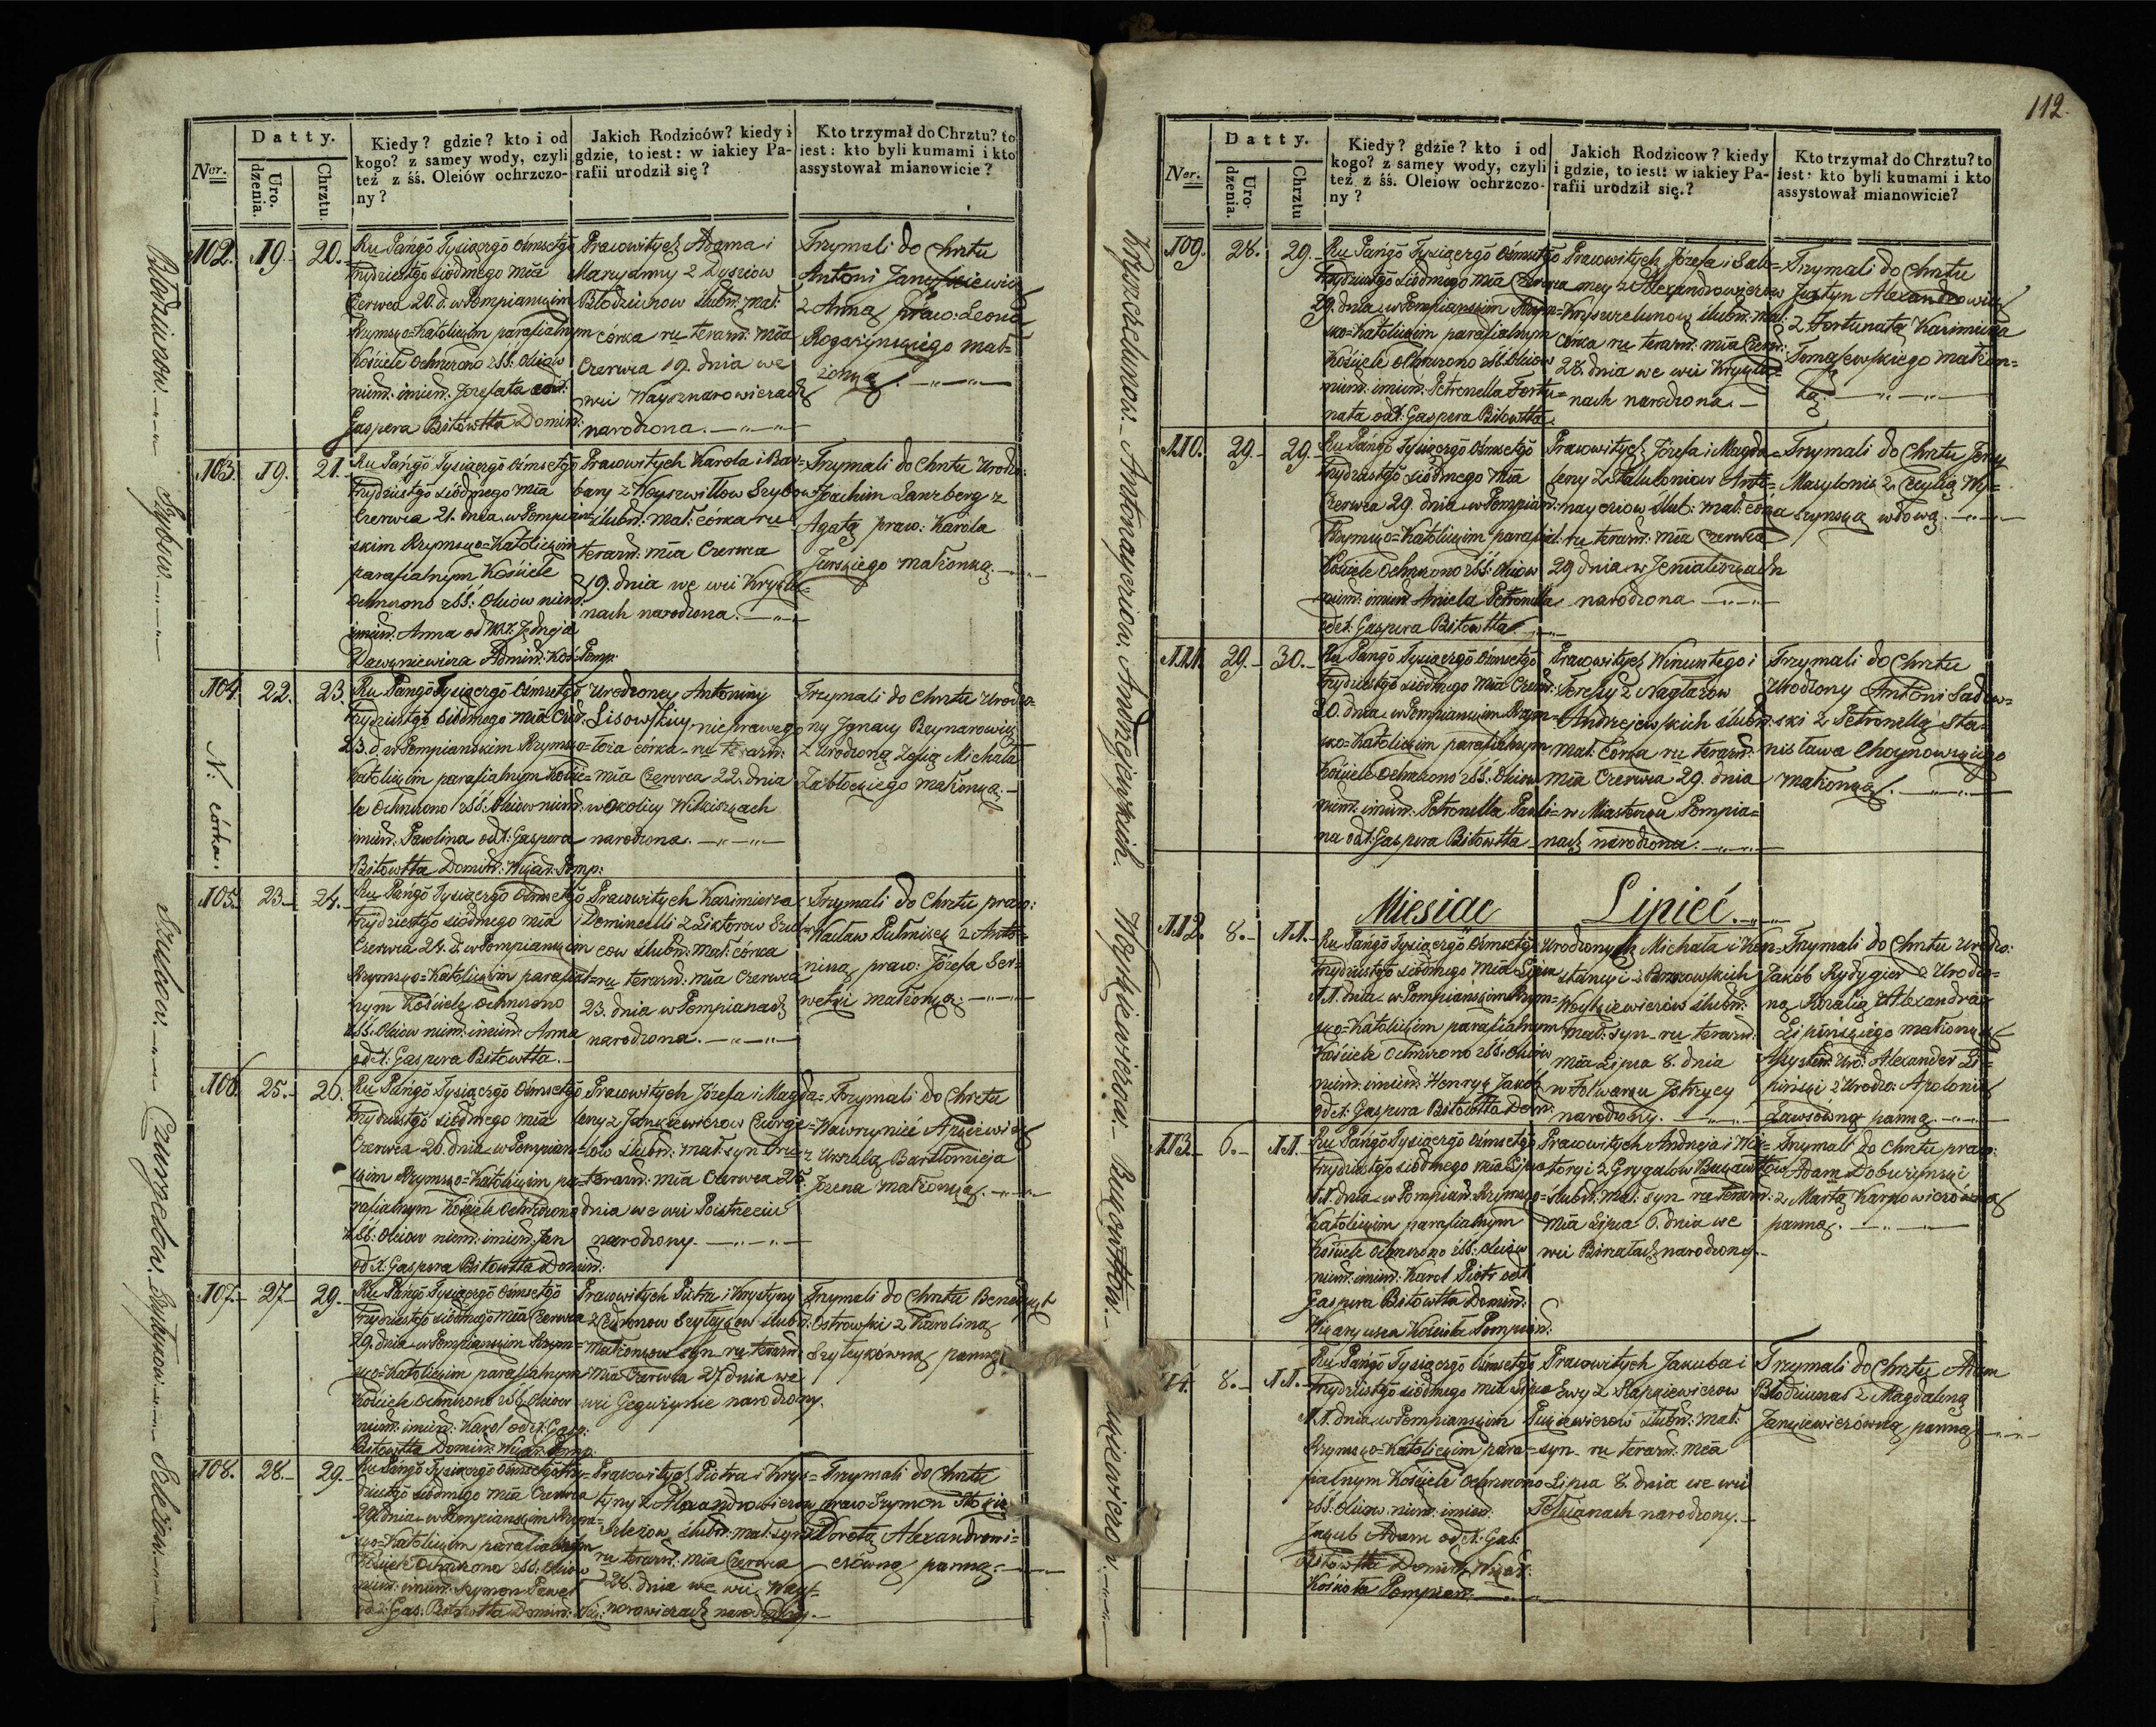 112.
Datty.
Ner.
Uro-
dzenia.
Chrztu.
Kiedy? gdzie? kto i od
kogo? z samey wody, czyli
też z śś. Oleiów ochrzczo-
ny?
Jakich Rodziców? kiedy i
gdzie, to iest: w iakiey Pa-
rafii urodził się?
Kto trzymał do Chrztu? to
iest: kto byli kumami i kto
assystował mianowicie?
102. 19. 20.
Ru Pańgo Tysiącgo Ośmsetgo
trydziestgo siódmego mca
Czerwca 20. d. w Pompianskim
Rzymsko=Katolickim parafialnym
Kościele Ochrzczono z SS. Oleiów
niem. imiem. Jozefata od X.
Gaspera Bitowtta Domin:
Pracowitych Adama i
Maryanny z Dysziow
Błodziunow ślubn: mał:
córka ru teraźn: mca
Czerwca 19. dnia we
wsi Waysznarowiczach
narodzona.
Trzymali do Chrztu
Antoni Jankiewicz
z Anną praw: Leona
Rogaczynskiego mał=
żonką.
103. 19. 21.
Ru Pańgo Tysiącgo Ośmsetgo
trydziestgo siódmego mca
Czerwca 21. dnia w Pompian=
skim Rzymsko=Katolickim
parafialnym Kościele
Ochrzczono z SS: Oleiów niem:
imiem: Anna od WX. Jędrzeja
Admin: Koś: Pomp:
Pracowitych Karola i Bar=
bary z Woyszwiłłow Szybow
ślubn: mał: córka ru
teraźn: mca Czerwca
19. dnia we wsi
nach narodzona.
Trzymali do Chrztu Urodz:
Joachim Sanzberg z
Agatą praw: Karola
Jurskiego małżonką.
104. 22. 23.
Ru Pańgo Tysiącgo Ośmsetgo
trydziestgo siódmego mca Czer:
23. d. w Pompianskim Rzymsko=
Katolickim parafialnym Koście=
le Ochrzczono z SS: Oleiow niem:
imiem: Paulina od X: Gaspera
Bitowtta Domin: Wikar: Pomp:
Urodzoney Antoniny
Lisowskiey nieprawego
łoża córka ru teraźn:
mca Czerwca 22. dnia
w okolicy Wilkiszkach
narodzona.
Trzymali do Chrztu Urodzo=
ny Jgnacy Beynarowicz
z Urodzoną Zofią Michała
Zabłockiego małżonką.
105. 23. 24.
Ru Pańgo Tysiącgo Ośmsetgo
trydziestgo siódmego mca
Czerwca 24. d. w Pompianskim
Rzymsko=Katolickim parafial=
nym Kościele Ochrzczono
z SS. Oleiow niem: imiem: Anna
od X: Gaspera Bitowtta.
Pracowitych Kazimierza
i Dominelli z Liktorow Szul=
cow ślubn: mał: córka
ru teraźn: mca Czerwca
23. dnia w Pompianach
narodzona.
Trzymali do Chrztu praw:
Wacław z Anto=
niną praw: Józefa
małżonką.
106. 25. 26.
Ru Pańgo Tysiącgo Ośmsetgo
trydziestgo siódmego mca
Czerwca 26. dnia w Pompian=
skim Rzymsko=Katolickim pa=
rafialnym Kościele Ochrzczono
z SS: Oleiow niem: imiem: Jan
od X: Gaspera Bitowtta Domin:
Pracowitych Józefa i Magda=
leny z Jankiewiczow
ślubn: mał: syn
teraźn: mca Czerwca 25.
dnia we wsi Poistrzeciu
narodzony.
Trzymali do Chrztu
Wawrzyniec
z Urszulą Bartłomieja
małżonką.
107. 27. 29.
Ru Pańgo Tysiącgo Ośmsetgo
trydziestgo siódmego mca Czerwca
29. dnia w Pompianskim Rzym=
sko=Katolickim parafialnym
Kościele Ochrzczono z SS. Oleiow
niem: imiem: Karol od X: Gasp:
Bitowtta Domin: Wikar: Pomp:
Pracowitych Piotra i Krystyny
z Szyłeykow ślubn:
małżonkow syn ru teraźn:
mca Czerwca 27 dnia we
wsi Geguzynie narodzony.
Trzymali do Chrztu Benedykt
Ostrowski z Karoliną
Szyłeykówną panną.
108. 28. 29.
Ru Pańgo Tysiącgo Ośmsetgo try=
dziestgo siódmego mca Czerwca
29. dnia w Pompianskim Rzym=
sko=Katolickim parafialnym
Kościele Ochrzczono z SS. Oleiow
niem: imiem: Szymon Paweł
od X: Gas: Bitowtta Domin: Wik:
Pracowitych Piotra i Krys=
tyny z Alexandrowiczow
ślubn: mał: syn
ru teraźn: mca Czerwca
28. dnia we wsi Waysz=
narowiczach narodzony.
Trzymali do Chrztu
praw: Szymon
z Dorotą Alexandrowi=
czówną panną.
Błodziunow.
Szybow.
N: córka:
Szulcow.
Szyłeykow.
Datty.
Ner.
Uro-
dzenia.
Chrztu
Kiedy? gdzie? kto i od
kogo? z samey wody, czyli
też z śś. Oleiow ochrzczo-
ny?
Jakich Rodzicow? kiedy
i gdzie, to iest: w iakiey Pa-
rafii urodził się.?
Kto trzymał do Chrztu? to
iest: kto byli kumami i kto
assystował mianowicie?
109. 28. 29.
Ru Pańgo Tysiącgo Ośmsetgo
trydziestgo siódmego mca Czerwca
29. dnia w Pompianskim Rzym=
sko=Katolickim parafialnym
Kościele Ochrzczono z SS. Oleiow
niem: imiem: Petronella Fortu=
nata od X: Gaspera Bitowtta.
Pracowitych Józefa i Salo=
mey z Alexandrowiczow
ślubn: mał:
córka ru teraźn: mca Czerw:
28. dnia we wsi
nach narodzona.
Trzymali do Chrztu
Justyn Alexandrowicz
z Fortunatą Kazimierza
Tomaszewskiego małżon=
ką.
110. 29. 29.
Ru Pańgo Tysiącgo Ośmsetgo
trydziestgo siódmego mca
Czerwca 29. dnia w Pompian:
Rzymsko=Katolickim parafial:
Kościele Ochrzczono z SS: Oleiow
niem: imiem Aniela Petronella
od X. Gaspera Bitowtta.
Pracowitych Józefa i Magda=
leny z Anto=
naycziow ślub: mał: córka
ru teraźn: mca Czerwca
29 dnia w
narodzona.
Trzymali do Chrztu Jerzy
Masylonis z Cecylią
wdową.
111. 29. 30.
Ru Pańgo Tysiącgo Ośmsetgo
trydziestgo siódmego mca Czerw:
30. dnia w Pompianskim Rzym=
sko=Katolickim parafialnym
Kościele Ochrzczono z SS: Oleiow
niem: imiem: Petronella Pauli=
na od X: Gaspera Bitowtta
Pracowitych Wincentego i
Teressy z Naglarow
Andrzejewskich ślubn:
mał: córka ru teraźn:
mca Czerwca 29. dnia
w Miasteczku Pompia=
nach narodzona.
Trzymali do Chrztu
Urodzony Antoni Sadow=
ski z Petronellą Sta=
nisława Choynowskiego
małżonką.
Miesiąc Lipiec.
112. 8. 11.
Ru Pańgo Tysiącgo Ośmsetgo
trydziestgo siódmego mca Lipca
11. dnia w Pompiańskim Rzym=
sko=Katolickim parafialnym
Kościele Ochrzczono z SS: Oleiow
niem: imiem: Henryk Jakob
od X: Gaspera Bitowtta Dom:
Urodzonych Michała i Kon=
stancyi z
Woytkiewiczów ślubn:
mał: syn ru teraźn:
mca Lipca 8. dnia
w Folwarku
narodzony.
Trzymali do Chrztu Urodzo:
Jakób Rydygier z Urodzo=
ną Rozalią Alexandra
Lipińskiego małżonką
Assyst: Uro: Alexander Li=
piński z Urodzo: Apolonią
panną.
113. 6. 11.
Ru Pańgo Tysiącgo Ośmsetgo
trydziestgo siódmego mca Lipca
11. dnia w Pompian: Rzymsko=
Katolickim parafialnym
Kościele Ochrzczono z SS: Oleiow
niem: imiem: Karol Piotr od X
Gaspera Bitowtta Domin:
Wikaryusza Kościoła Pompian:
Pracowitych Andrzeja i Wik=
toryi z Grygalow
ślubn: mał: syn ru teraźn:
mca Lipca 6. dnia we
wsi narodzony.
Trzymali do Chrztu praw:
Adam Dobużynski
z Martą Karpowiczówną
panną.
114. 8. 11.
Ru Pańgo Tysiącgo Ośmsetgo
trydziestgo siódmego mca Lipca
11. dnia w Pompianskim
Rzymsko=Katolickim para=
fialnym Kościele Ochrzczono
z SS: Oleiow niem: imiem:
Jakub Adam od X. Gas:
Bitowtta Domin: Wikar:
Kościoła Pompian.
Pracowitych Jakuba i
Ewy z
ślubn: mał:
syn ru teraźn: mca
Lipca 8. dnia we wsi
narodzony.
Trzymali do Chrztu Adam
Błodziunas z Magdaleną
Jankiewiczówną panną.
Antonaycziow.
Andrzejewskich.
Woytkiewiczow.